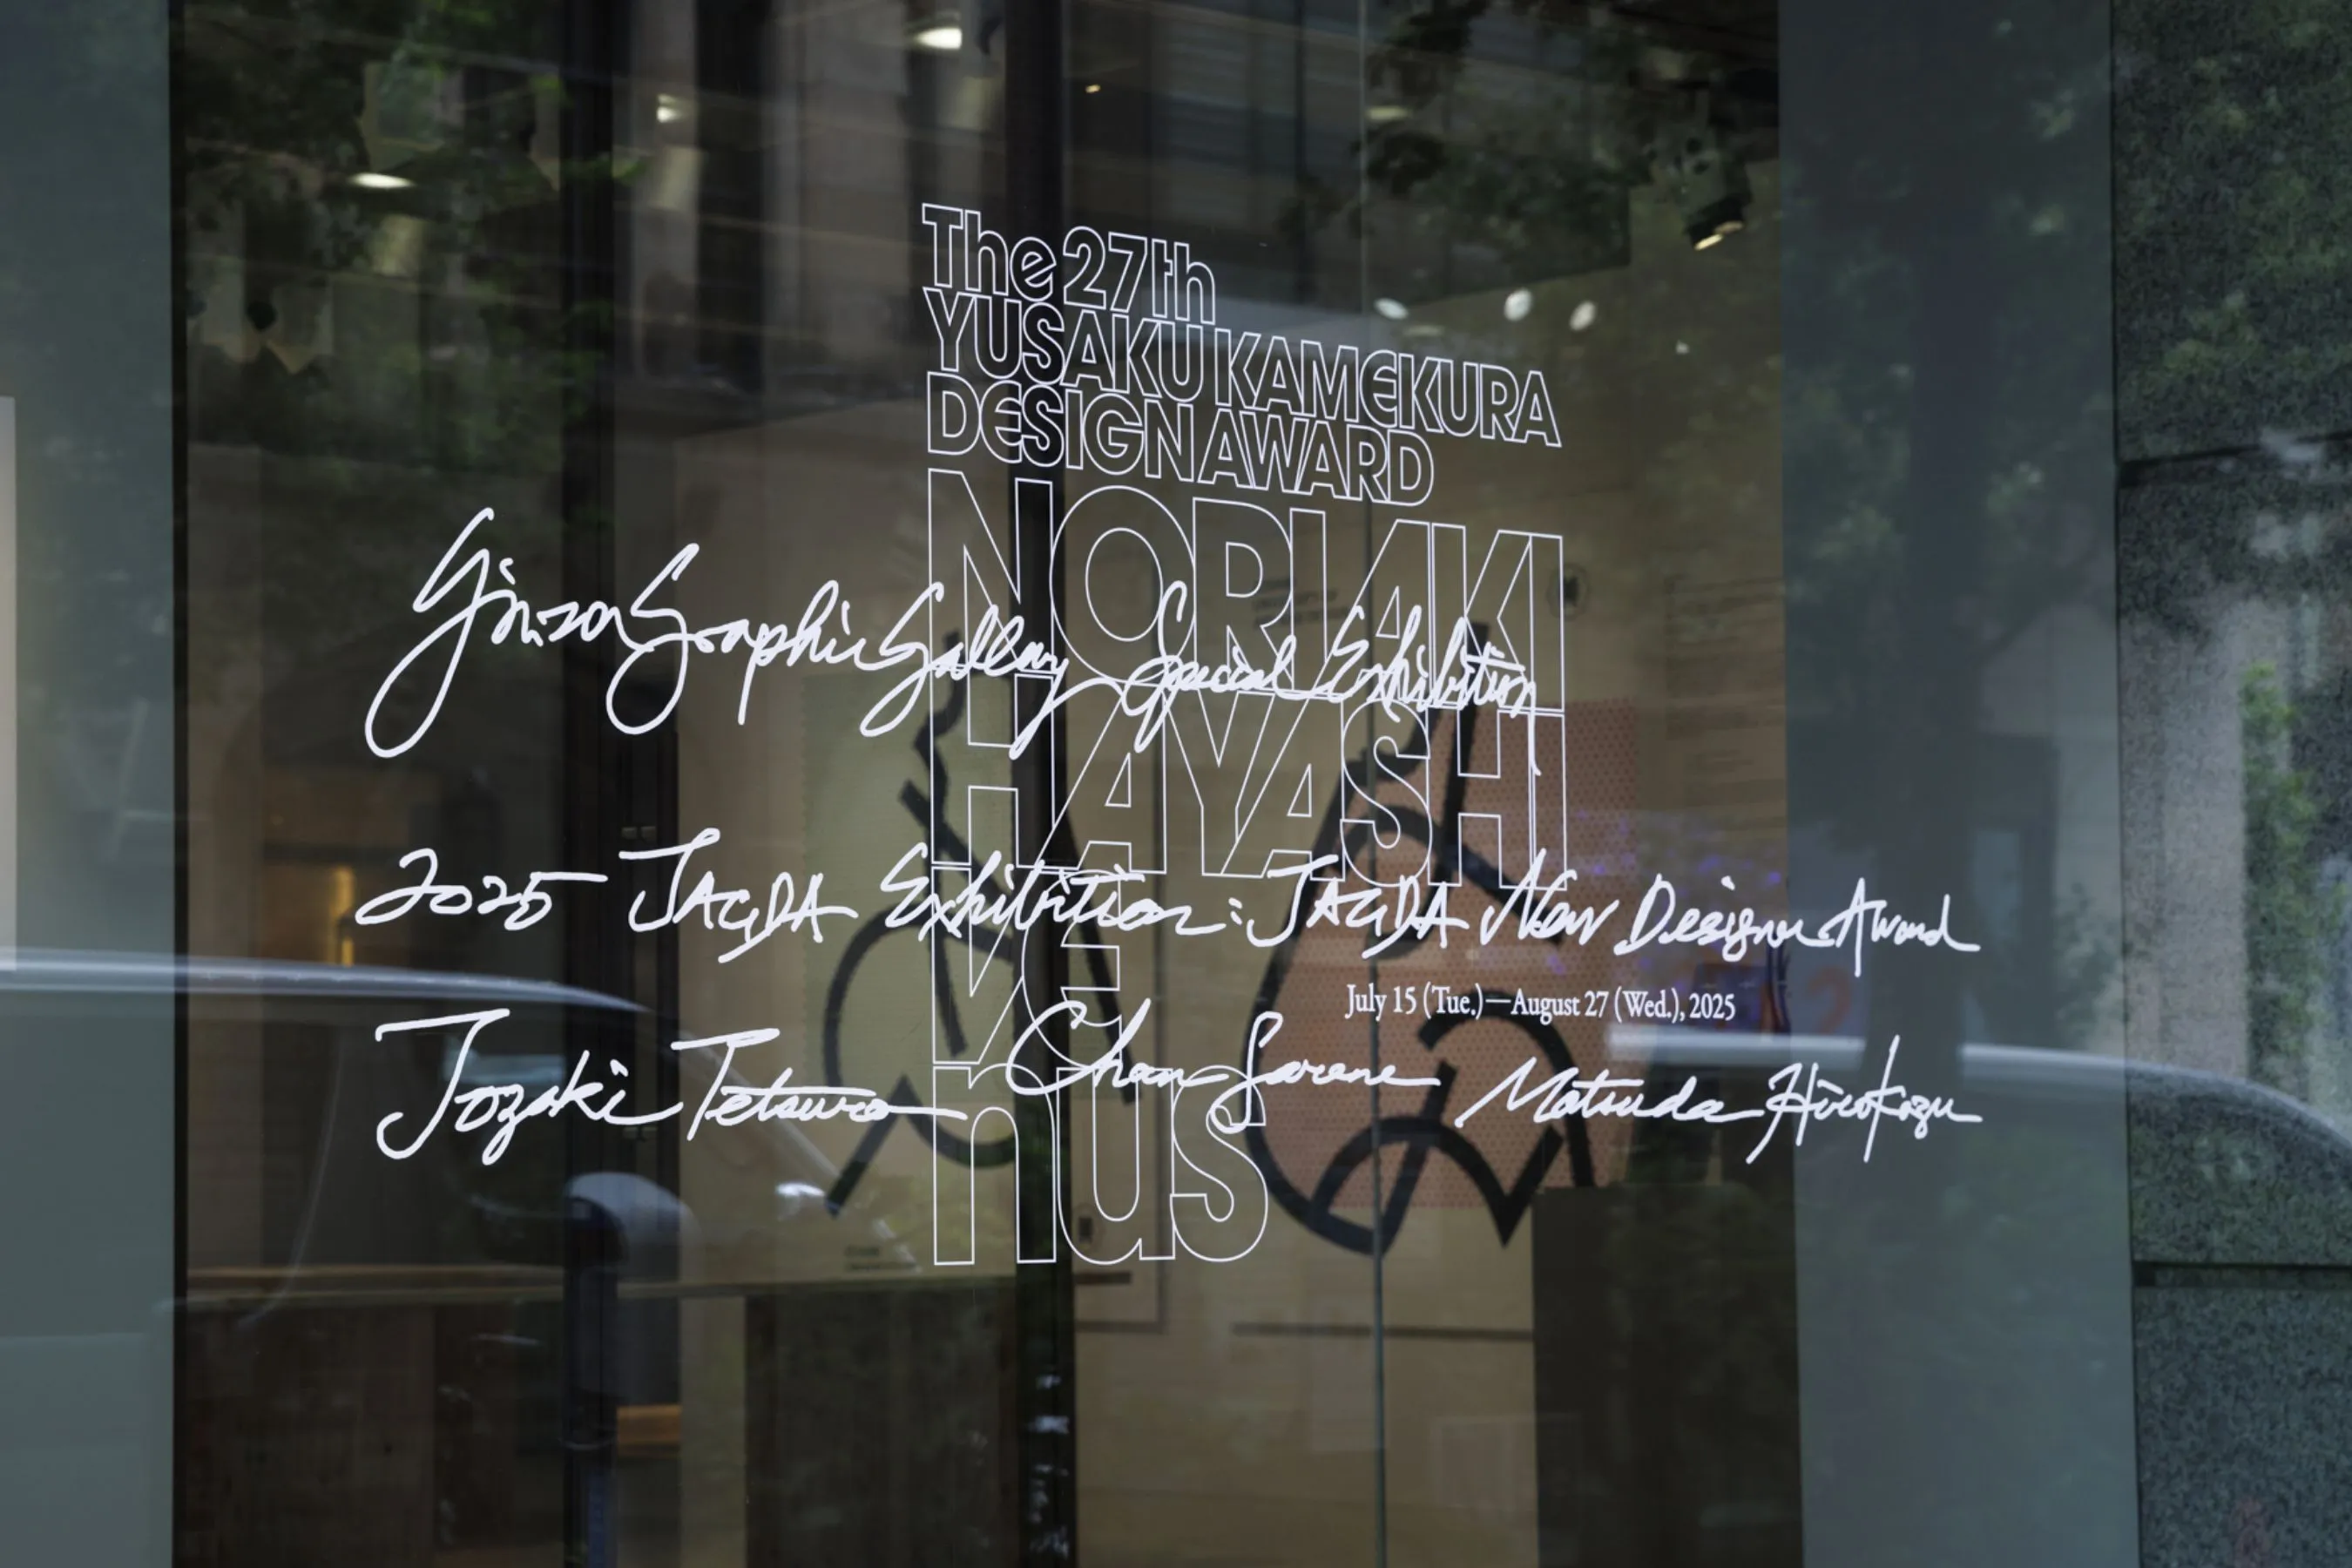 The 27th
YUSAKU KAMEKURA
DESIGN AWARD
NORIAKI
HAYASHI
ve
nus
Ginza Graphic Gallery Special Exhibition
2025 JAGDA Exhibition: JAGDA New Designer Award
July 15 (Tue.)—August 27 (Wed.), 2025
Jozaki Tetsuro Chan Sarene Matsuda Hirokazu